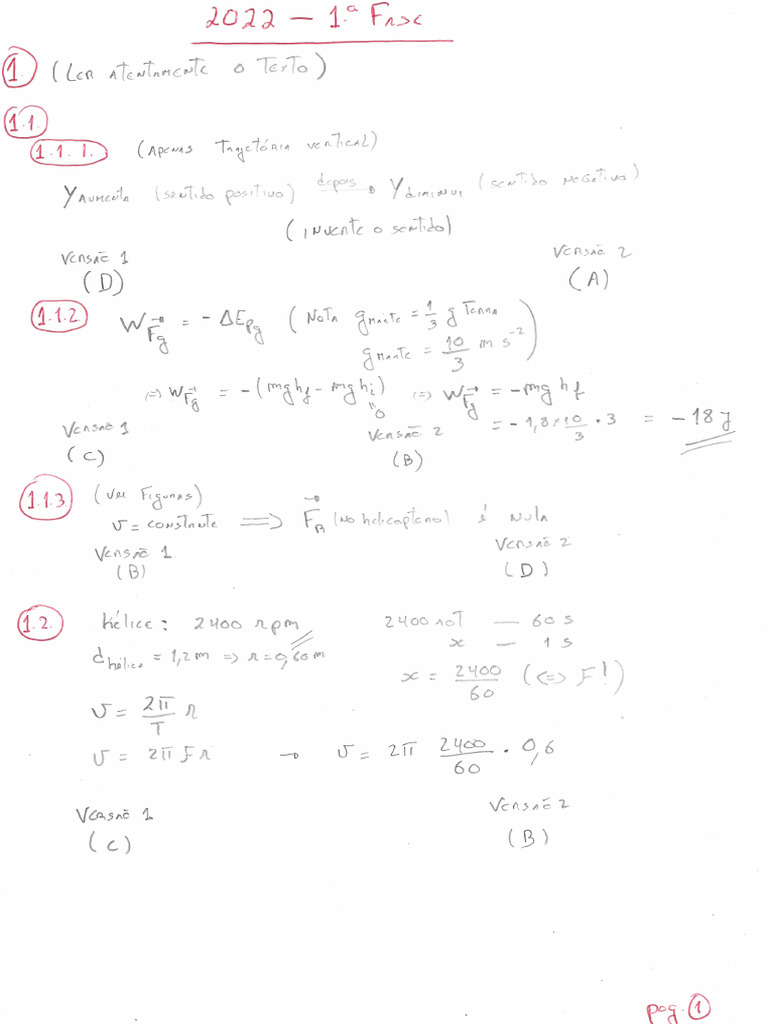 2022 — 1.ª Fase
1. (Ler atentamente o texto)
1.1.
1.1.1. (Apenas trajetória vertical)
y aumenta (sentido positivo) depois → y diminui (sentido negativo)
(inverte o sentido)
Versão 1 Versão 2
(D) (A)
1.1.2 W_F⃗g = - ΔEpg (Nota g Marte = 1/3 g Terra
g Marte = 10/3 m s⁻²)
⇔ W_F⃗g = -(mghf - mghi) ⇔ W_F⃗g = - mg hf
"0 = - 1,8 × 10/3 · 3 = - 18 J
Versão 1 Versão 2
(C) (B)
1.1.3 (Ver figuras)
v = constante ⟹ F⃗R (no helicoptero) é nula
Versão 1 Versão 2
(B) (D)
1.2. hélice: 2400 rpm 2400 rot — 60 s
d hélice = 1,2 m ⇒ r = 0,60 m x — 1 s
x = 2400/60 (⇔ f!)
v = 2π/T r
v = 2π f r → v = 2π 2400/60 · 0,6
Versão 1 Versão 2
(C) (B)
pag. 1